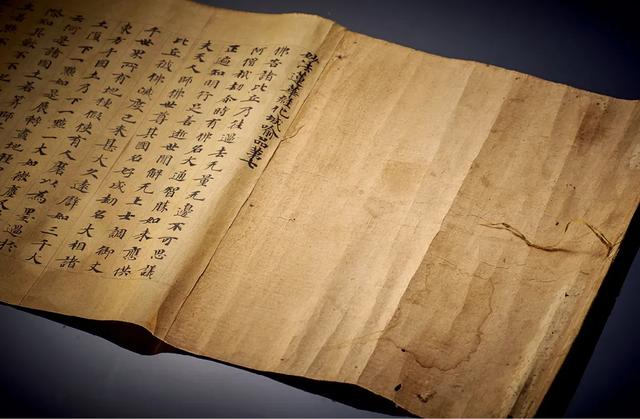 妙法蓮華經化城喻品第七
佛告諸比丘乃往過去无量无邊不可思議
阿僧祇劫尒時有佛名大通智勝如來應供
正遍知明行足善逝世間解无上士調御丈
夫天人師佛世尊其國名好成劫名大相諸
比丘彼佛滅度已來甚大久遠譬如三千大
千世界所有地種假使有人磨以為墨過於
東方千國土乃下一點大如微塵
土復下一點如是展轉盡地種
云何是諸國土若筭師
際知其數不不也
土若